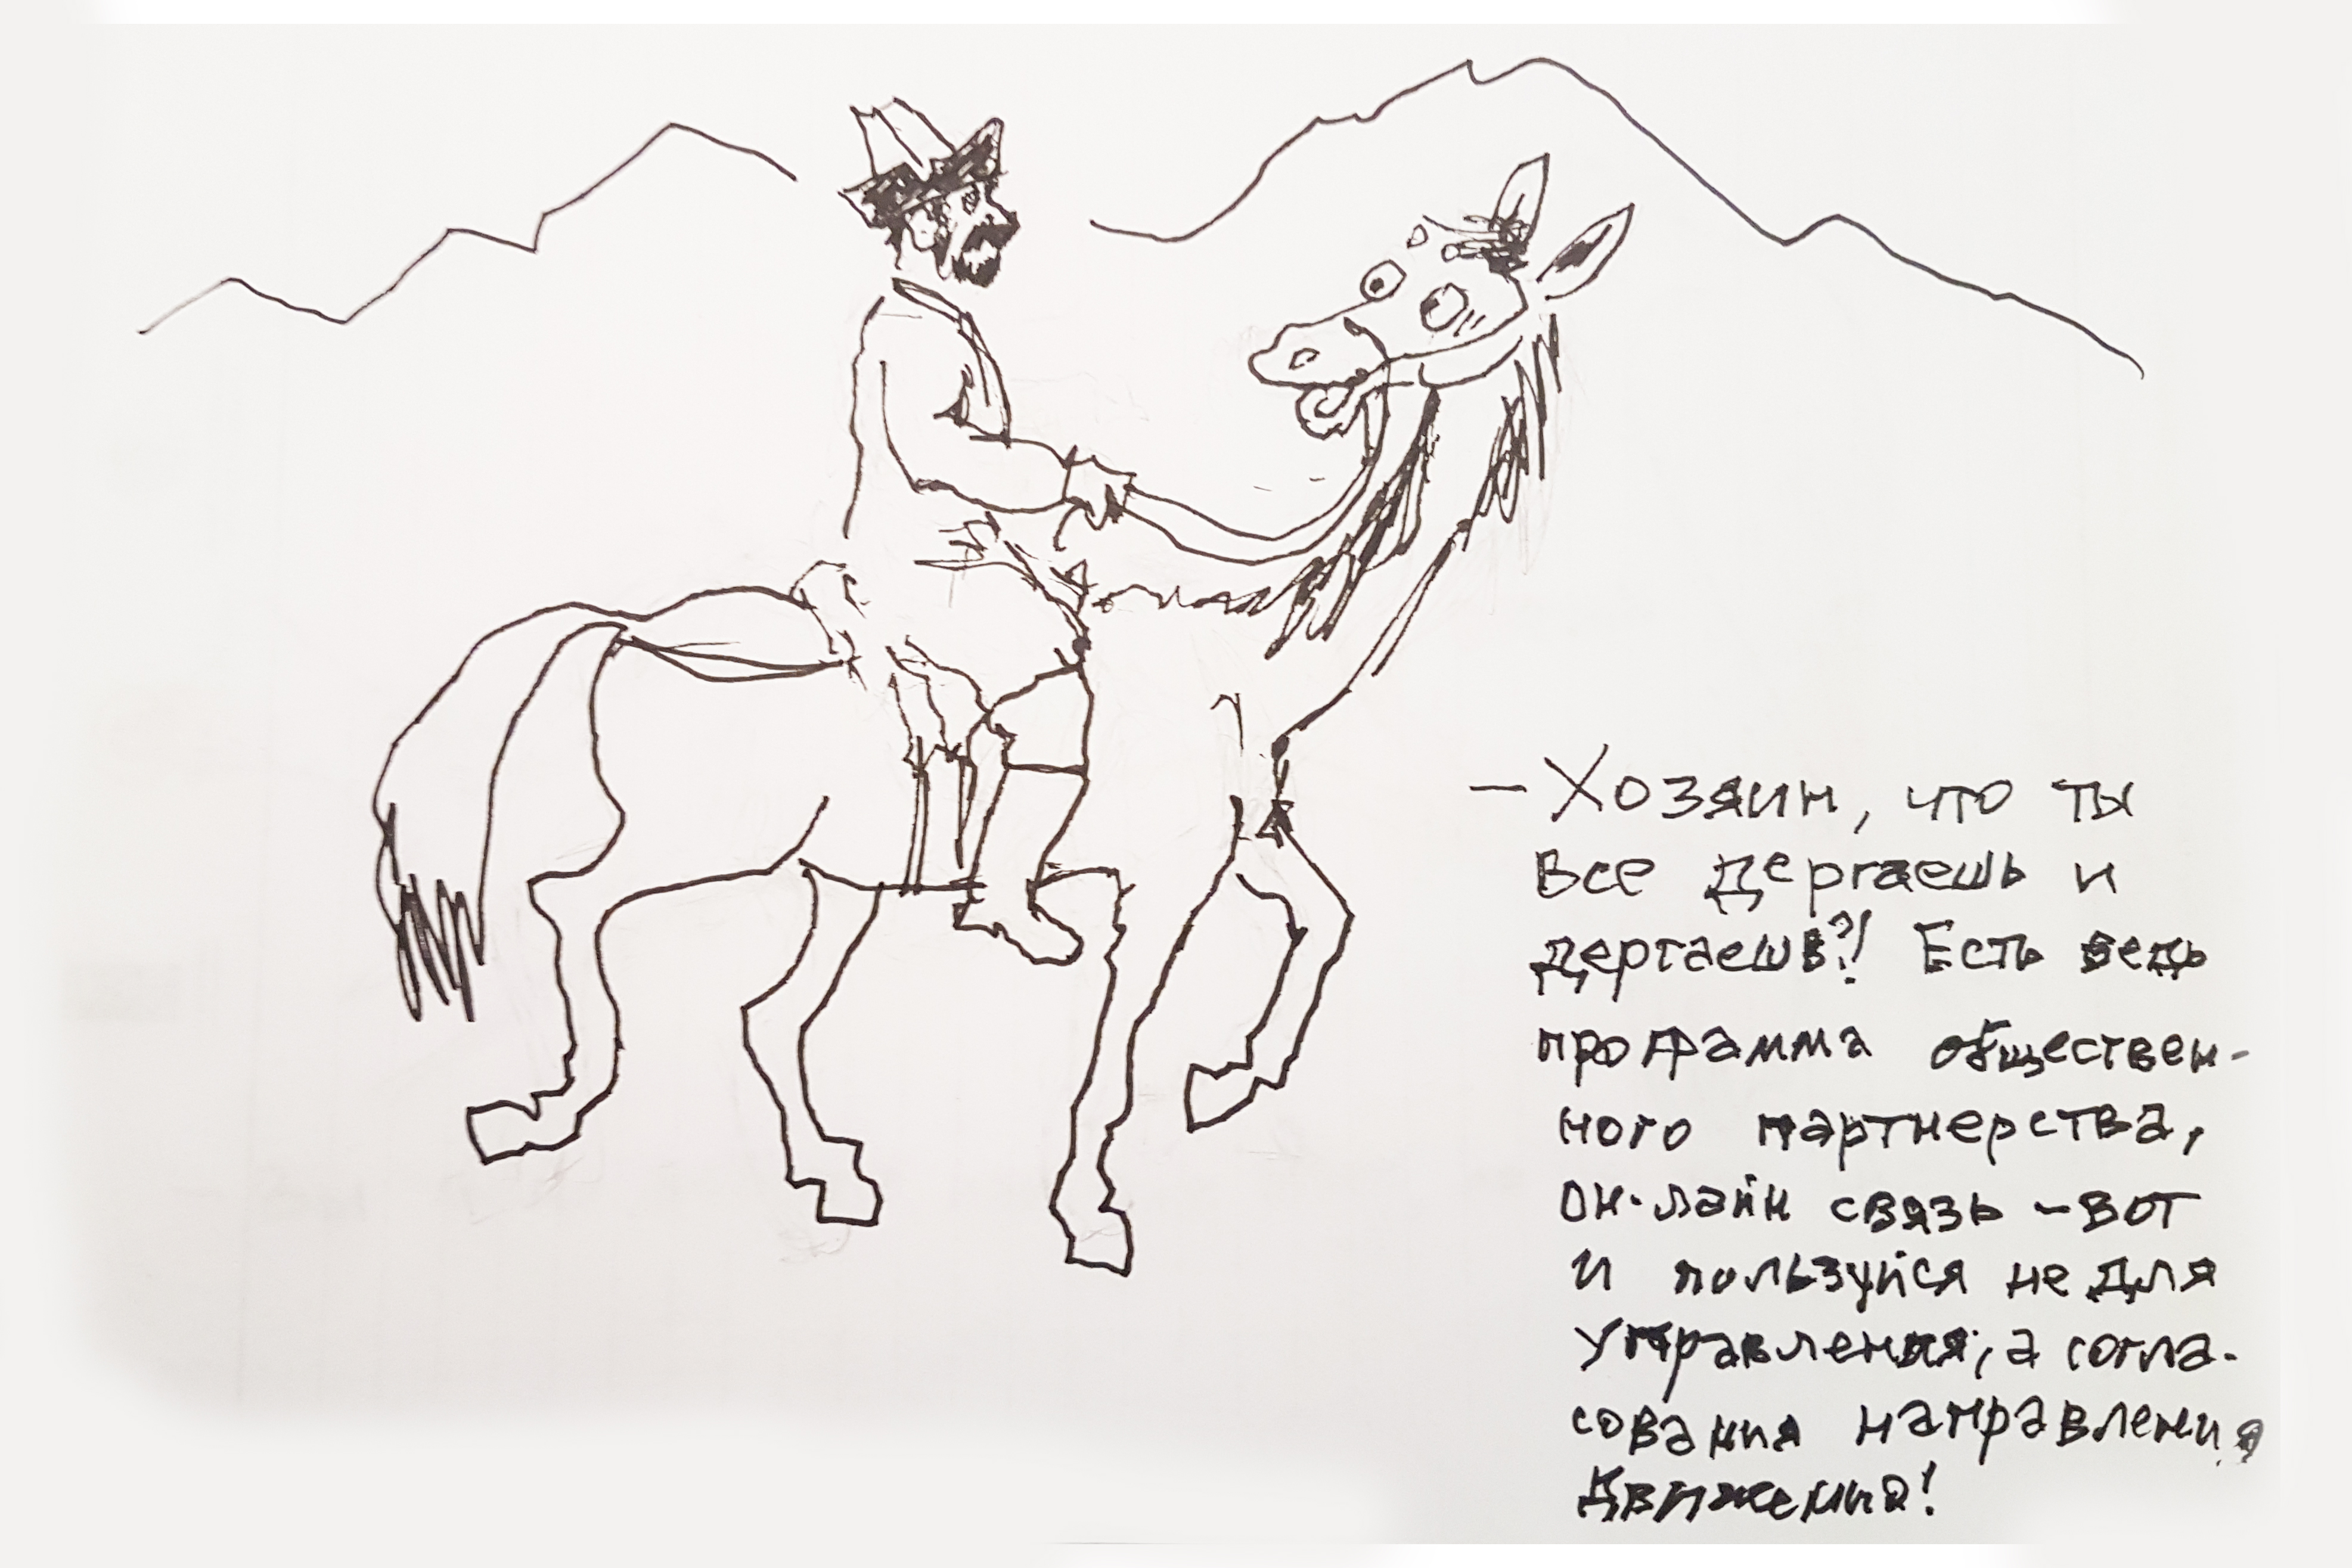 — Хозяин, что ты
все дергаешь и
дергаешь?! Есть ведь
программа обществен-
ного партнерства,
он-лайн связь – вот
и пользуйся не для
управления, а согла-
сования направления
движения!